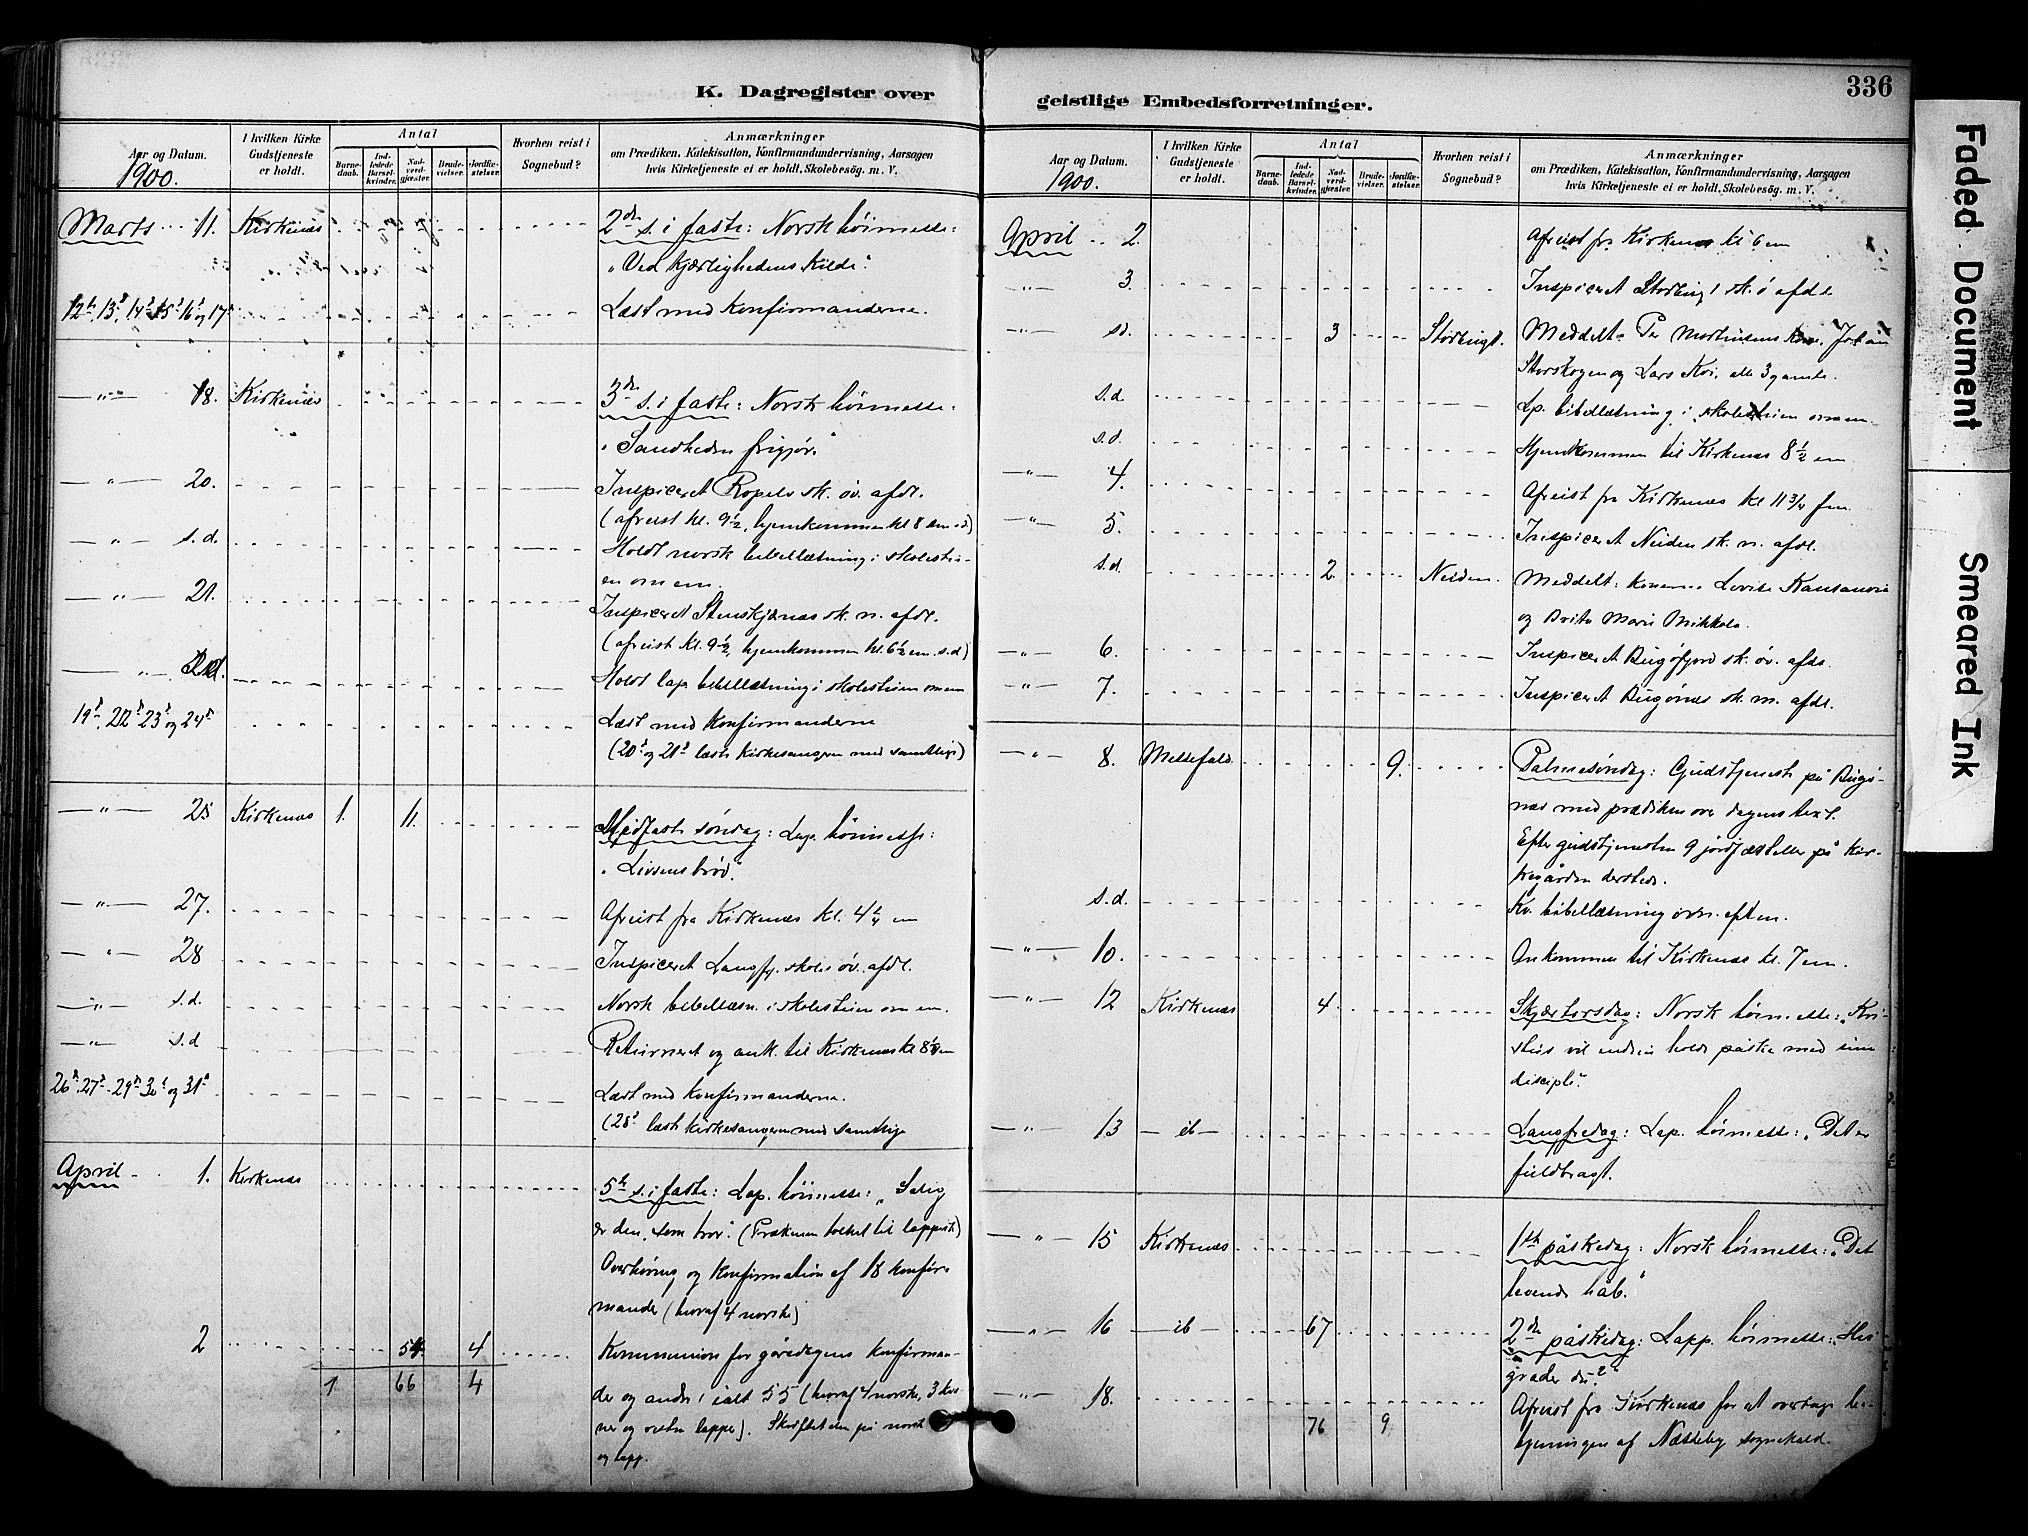 K. Dagregister over
Aar og Datum.
1900.
I hvilken Kirke
Gudstjeneste
er holdt.
Antal
Barne-
daab.
Ind-
ledede
Barsel-
kvinder.
Nad-
verd-
gjester.
Brude-
vielser.
Jordfæ-
stelser.
Hvorhen reist i
Sognebud?
Anmærkninger
om Prædiken, Katekisation, Konfirmandundervisning, Aarsagen
hvis Kirketjeneste ei er holdt, Skolebesøg. m. V.
Marts 11. Kirkenæs 2den s. i faste: Norsk høimesse:
"Ved kjærlighedens kilde".
12te, 13de, 14de, 15de, 16de og 17de Læst med konfirmanderne.
— " — 18. Kirkenæs 3die s. i faste: Norsk høimesse:
"Sandheden frigjør."
— " — 20. Inspiceret Ropelv sk. øv. afdl.
(afreist kl. 9½, hjemkommen kl 8 em s.d)
— " — s.d. Holdt norsk bibellæsning i skolestu-
en om em.
— " — 21. Inspiceret Stenskjærnæs sk. n. afdl.
(afreist kl. 9½, hjemkommen kl. 6½ em. s.d)
— " — s.d. Holdt lap bibellæsning i skolestuen om em
19de, 22de 23de og 24de Læst med konfirmanderne
(20de og 21de læste kirkesangeren med samtlige)
— " — 25 Kirkenæs 1. 11. Midfaste søndag: Lap. høimesse:
"Livsens brød".
— " — 27. Afreist fra Kirkenæs kl. 4¼ em
— " — 28 Inspiceret Langfj. skoles øv. afdl.
— " — s.d. Norsk bibellæsn. i skolestuen om em.
— " — s.d Returneret og ank. til Kirkenæs kl 8½ em
26de, 27de, 29de 30te og 31te Læst med konfirmanderne.
(28de læst kirkesangeren med samtlige
April 1. Kirkenæs 5te s. i faste: Lap. høimesse: "Salig
er den, som tror". (Prækenen tolket til lappisk)
Overhøring og konfirmation af 18 konfir-
mander (hvoraf 4 norske)
2 54. 4 Kommunion for gårsdagens konfirman-
1 66 4 der og andre i ialt 55 (hvoraf 4 norske, 3 kvæ-
ner og resten lapper). Skriftetalen på norsk
og lapp.
geistlige Embedsforretninger.
336
Aar og Datum.
1900.
I hvilken Kirke
Gudstjeneste
er holdt.
Antal
Barne-
daab.
Ind-
ledede
Barsel-
kvinder.
Nad-
verd-
gjester.
Brude-
vielser.
Jordfæ-
stelser.
Hvorhen reist i
Sognebud?
Anmærkninger
om Prædiken, Katekisation, Konfirmandundervisning, Aarsagen
hvis Kirketjeneste ei er holdt, Skolebesøg. m. V.
April 2. Afreist fra Kirkenæs kl 6 em
— " — 3. Inspiceret Storbugt sk. ø afdl.
— " — s.d. 3 Storbugt. Meddelt Per Mortensens
Storskogen og Lars Koi, alle 3 gamle.
s.d. Lp. bibellæsning i skolestuen om em.
s.d. Hjemkommen til Kirkenæs 8½ em
— " — 4. Afreist fra Kirkenæs kl 11¾ fm.
— " — 5. Inspiceret Neiden sk. n. afdl.
s.d. 2. Neiden. Meddelt: konerne Lovise
og Brita Marie Mikkola.
— " — 6. Inspiceret Bugøfjord sk. øv. afd.
— " — 7. Inspiceret Bugønæs sk. n. afdl.
— " — 8. Messefald 9. Palmesøndag: Gudstjeneste på Bugø-
næs med prædiken over dagens text.
Efter gudstjenesten 9 jordfæstelser på kir-
kegården dersteds.
s.d. Kv. bibellæsning efterm.
— " — 10. Ankommen til Kirkenæs kl. 7 em.
— " — 12 Kirkenæs 4. Skjærtorsdag: Norsk høimesse: "Kri-
stus vil endnu holde påske med sine
disciple".
— " — 13 — ib — Langfredag: Lap. høimesse: "Det er
fuldbragt.
— " — 15 Kirkenæs 1ste påskedag: Norsk høimesse: "Det
levende håb."
— " — 16 — ib — 67 2den påskedag: Lapp. høimesse: "Hvi
græder du?"
— " — 18. Afreist fra Kirkenæs for at overtage be-
76 9 tjeningen af Næsseby sognekald.
Faded Document
Smeared Ink